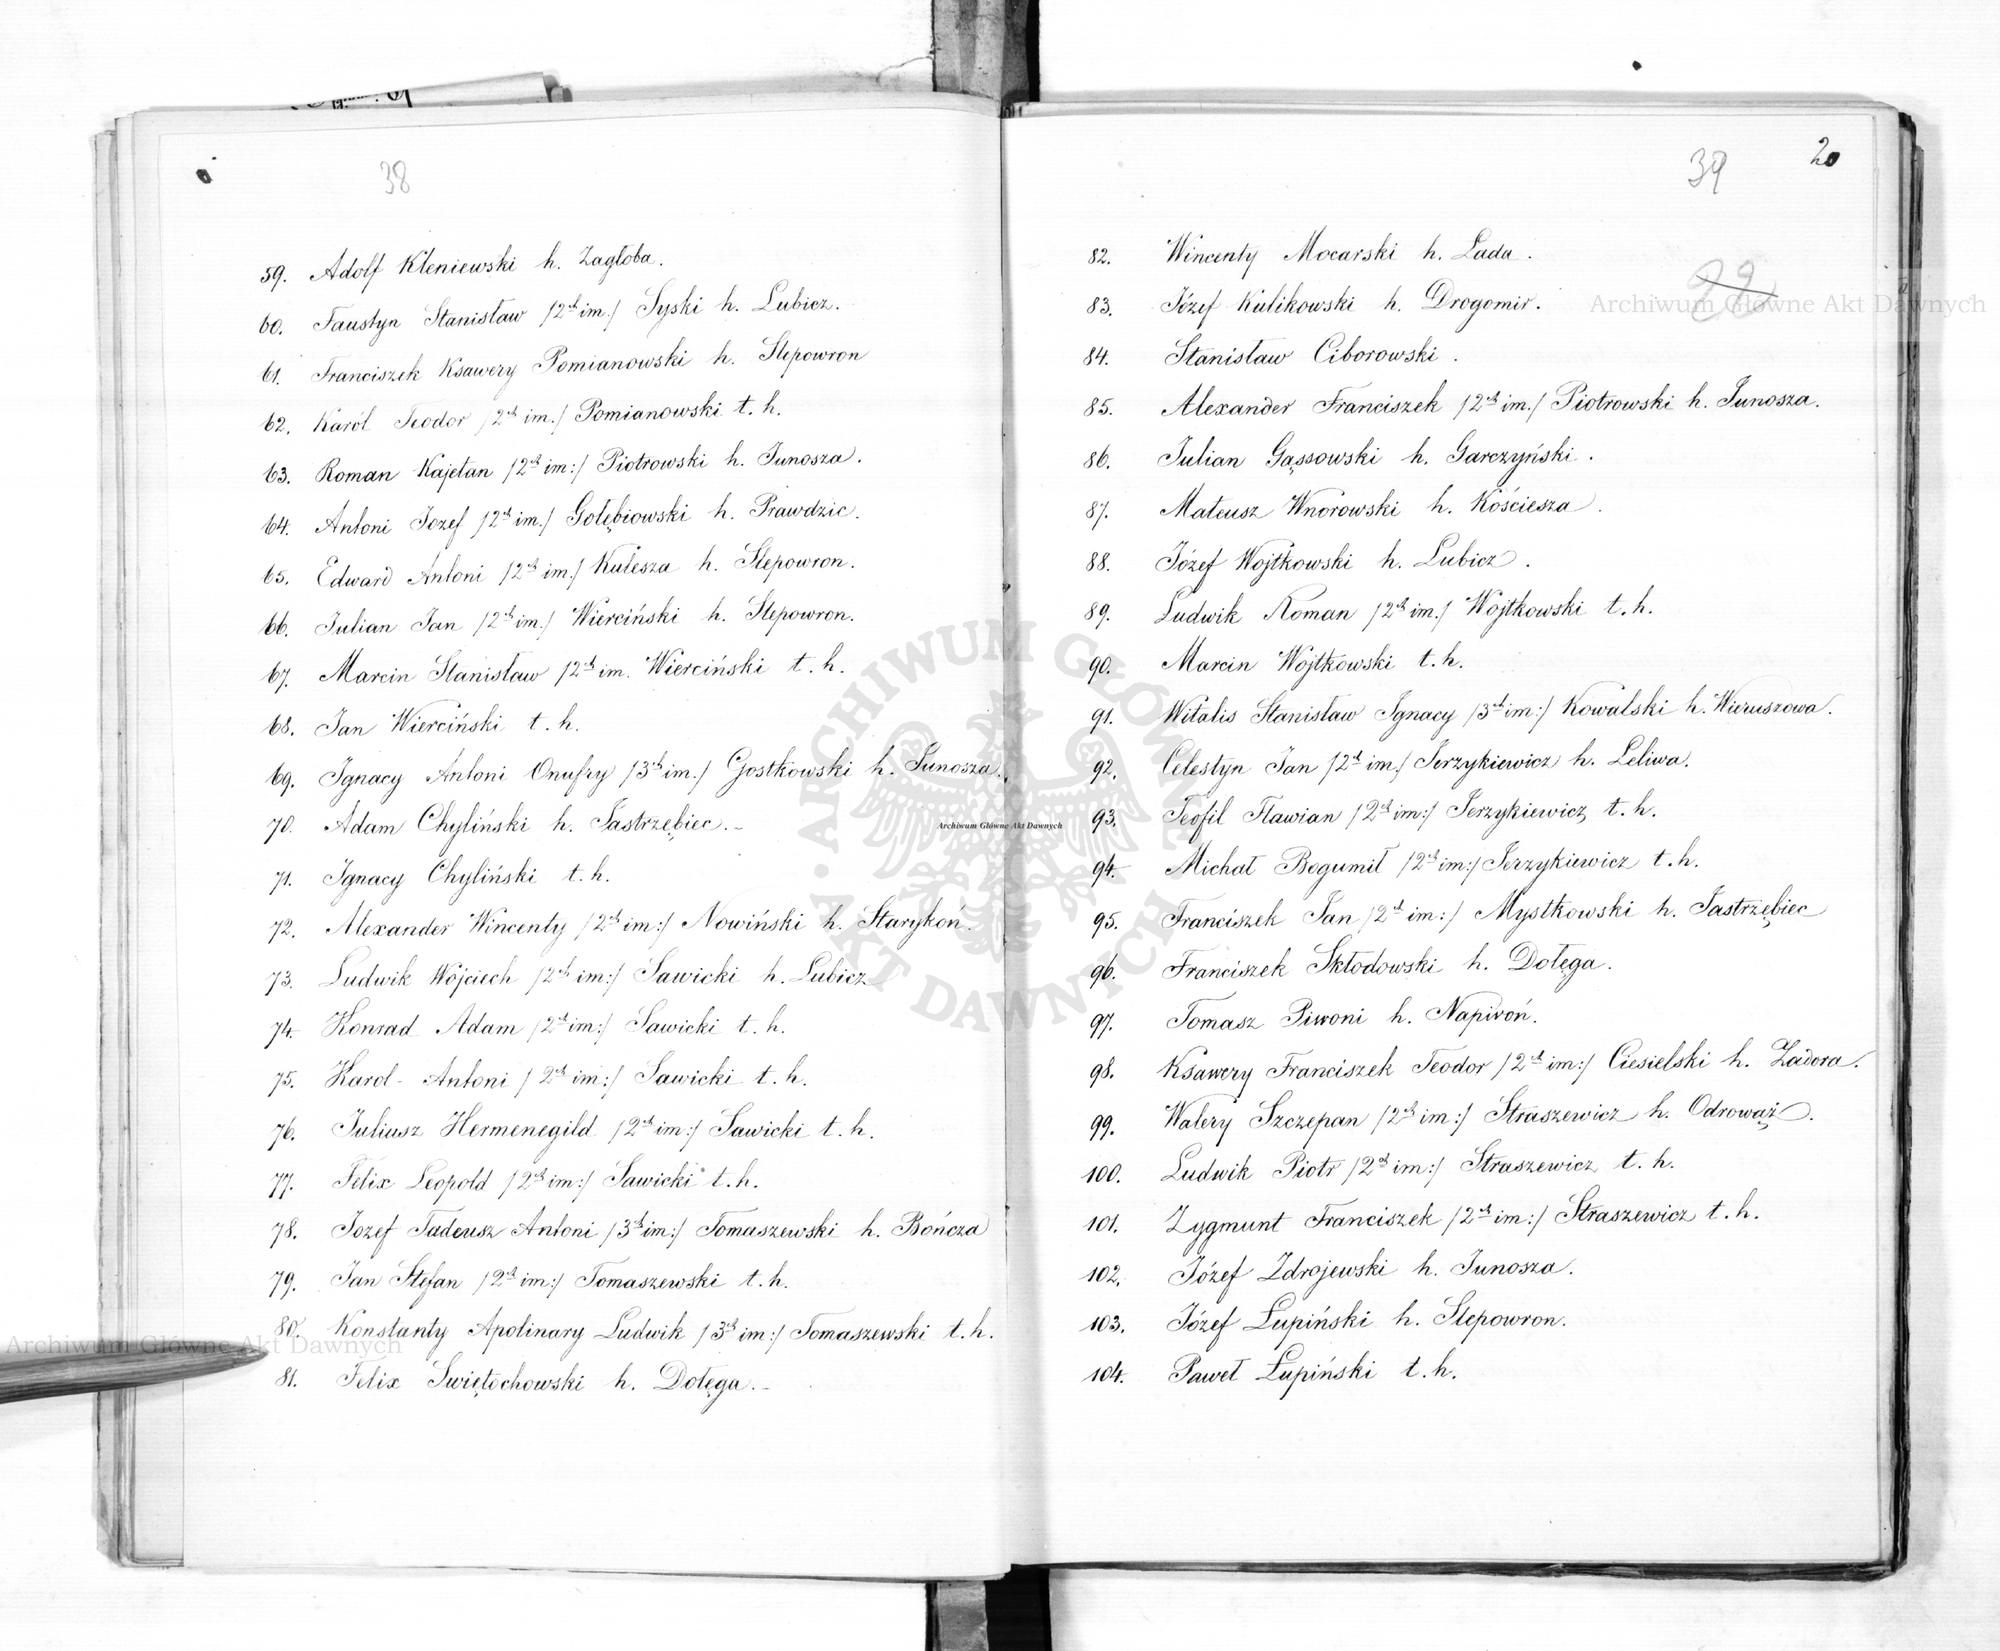 38
59. Adolf Kleniewski h. Zagłoba.
60. Faustyn Stanisław /2ch im./ Syski h. Lubicz.
61. Franciszek Ksawery Pomianowski h. Slepowron
62. Karól Teodor /2ch im./ Pomianowski t. h.
63. Roman Kajetan /2ch im:/ Piotrowski h. Junosza.
64. Antoni Jozef /2ch im./ Gołębiowski h. Prawdzic.
65. Edward Antoni /2ch im./ Kulesza h. Slepowron.
66. Julian Jan /2ch im./ Wierciński h. Slepowron.
67. Marcin Stanisław /2ch im. Wierciński t. h.
68. Jan Wierciński t. h.
69. Ignacy Antoni Onufry /3ch im./ Gostkowski h. Junosza.
70. Adam Chyliński h. Jastrzębiec.-
71. Ignacy Chyliński t. h.
72. Alexander Wincenty /2ch im:/ Nowiński h. Starykoń.
73. Ludwik Wojciech /2ch im:/ Sawicki h. Lubicz
74. Konrad Adam /2ch im:/ Sawicki t. h.
75. Karol- Antoni /2ch im:/ Sawicki t. h.
76. Juliusz Hermenegild /2ch im:/ Sawicki t. h.
77. Felix Leopold /2ch im:/ Sawicki t. h.
78. Jozef Tadeusz Antoni /3ch im:/ Tomaszewski h. Bończa
79. Jan Stefan /2ch im:/ Tomaszewski t. h.
80. Konstanty Apolinary Ludwik /3ch im:/ Tomaszewski t. h.
81. Felix Swiętochowski h. Dołęga.-
39 20
82. Wincenty Mocarski h. Lada.
83. Józef Kulikowski h. Drogomir.
84. Stanisław Ciborowski.
85. Alexander Franciszek /2ch im./ Piotrowski h. Junosza.
86. Julian Gąssowski h. Garczyński.
87. Mateusz Wnorowski h. Kościesza.
88. Józef Wojtkowski h. Lubicz.
89. Ludwik Roman /2ch im./ Wojtkowski t. h.
90. Marcin Wojtkowski t. h.
91. Witalis Stanisław Ignacy /3ch im:/ Kowalski h. Wieruszowa.
92. Celestyn Jan /2ch im./ Jerzykiewicz h. Leliwa.
93. Teofil Flawian /2ch im:/ Jerzykiewicz t. h.
94. Michał Bogumił /2ch im:/ Jerzykiewicz t. h.
95. Franciszek Jan /2ch im:/ Mystkowski h. Jastrzębiec
96. Franciszek Skłodowski h. Dołęga.
97. Tomasz Piwoni h. Napiwoń.
98. Ksawery Franciszek Teodor /2ch im:/ Ciesielski h. Zadora.
99. Walery Szczepan /2ch im:/ Straszewicz h. Odrowąż.
100. Ludwik Piotr /2ch im:/ Straszewicz t. h.
101. Zygmunt Franciszek /2ch im:/ Straszewicz t. h.
102. Józef Zdrojewski h. Junosza.
103. Józef Łupiński h. Slepowron.
104. Paweł Łupiński t. h.
Archiwum Główne Akt Dawnych
Archiwum Główne Akt Dawnych
Archiwum Główne Akt Dawnych
ARCHIWUM GŁÓWNE AKT DAWNYCH